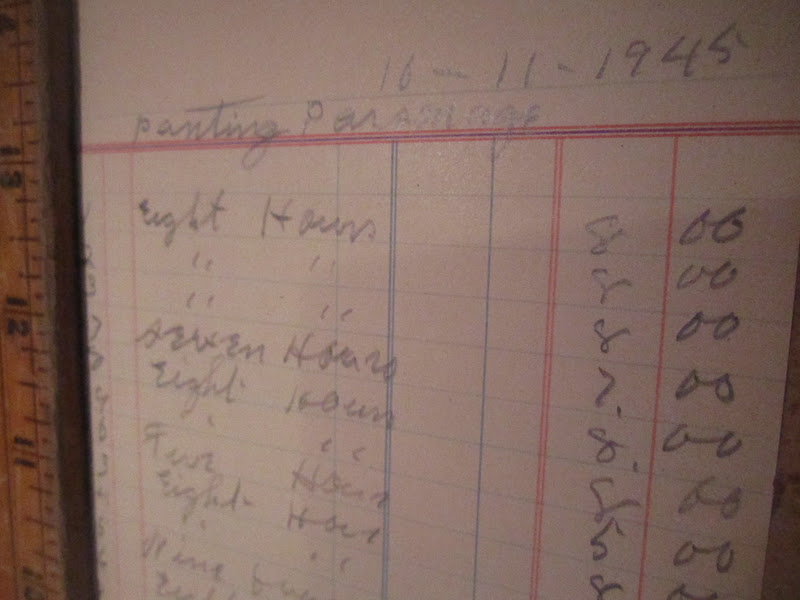 16 - 11 - 1945
panting Parsonage
Eight Hours 8 00
" " 8 00
" " 8 00
seven Hours 7. 00
Eight Hours 8. 00
" " 8 00
Five Hours 5 00
Eight Hours 8
" "
Nine
Eight
13
12
11